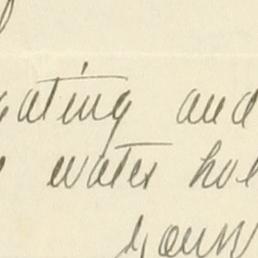 ating and
water hol
yours